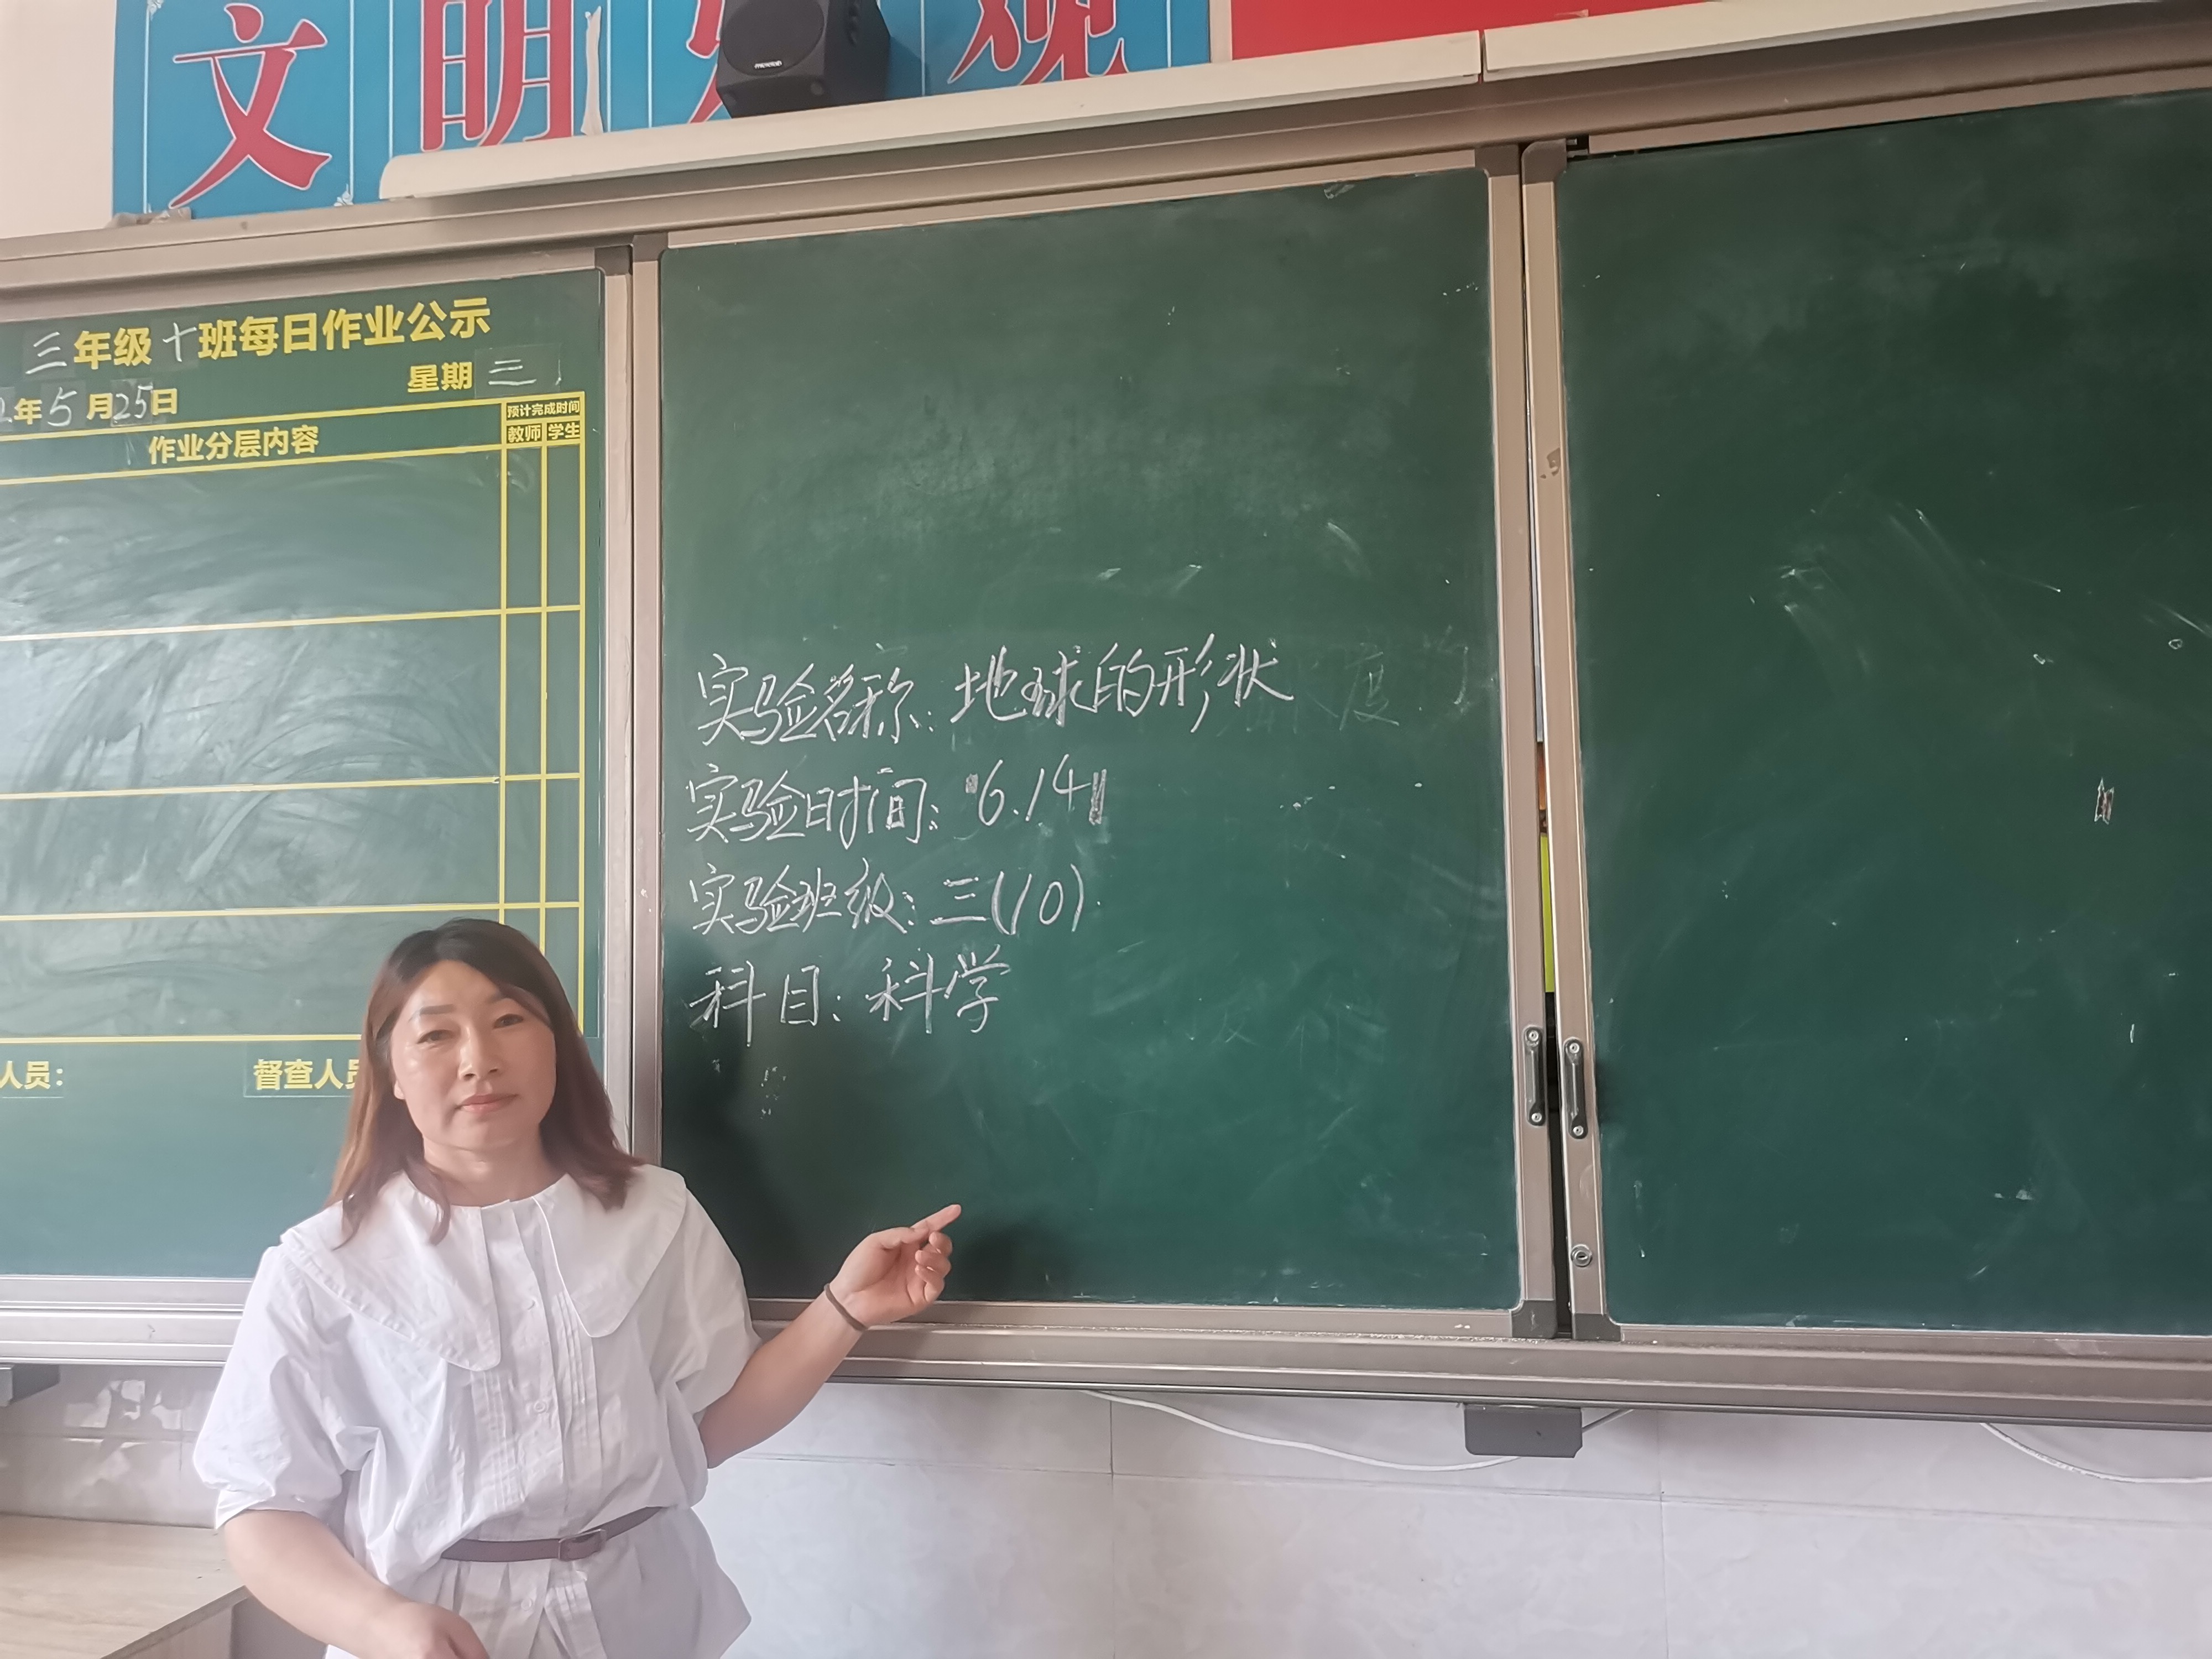 文明
三年级十班每日作业公示
星期三
年5月25日
预计完成时间
作业分层内容
教师 学生
实验名称: 地球的形状
实验时间: 6.14
实验班级: 三(10)
科目: 科学
人员:
督查人员